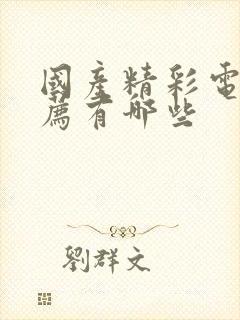 國產精彩電
薦有哪些
劉群文